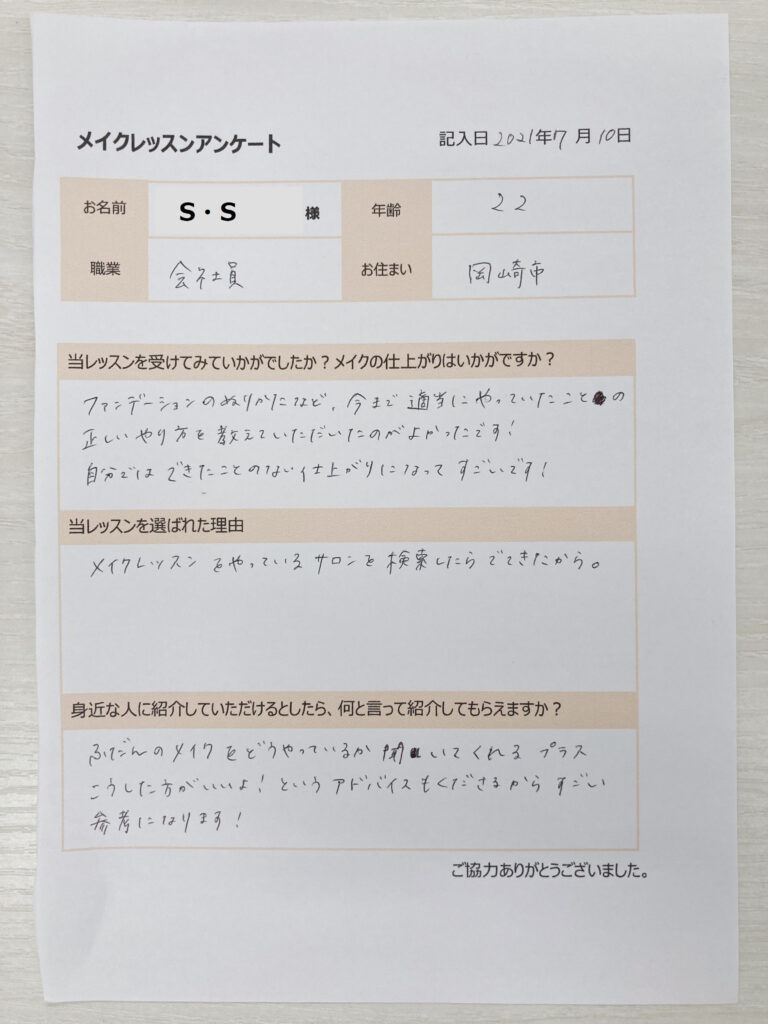 メイクレッスンアンケート
記入日 2021年7月10日
お名前 S・S 様 年齢 22
職業 会社員 お住まい 岡崎市
当レッスンを受けてみていかがでしたか？メイクの仕上がりはいかがですか？
ファンデーションのぬりかたなど、今まで適当にやっていたことの
正しいやり方を教えていただいたのがよかったです！
自分ではできたことのない仕上がりになってすごいです！
当レッスンを選ばれた理由
メイクレッスンをやっているサロンを検索したらでてきたから。
身近な人に紹介していただけるとしたら、何と言って紹介してもらえますか？
ふだんのメイクをどうやっているか いてくれるプラス
こうした方がいいよ！というアドバイスもくださるからすごい
参考になります！
ご協力ありがとうございました。